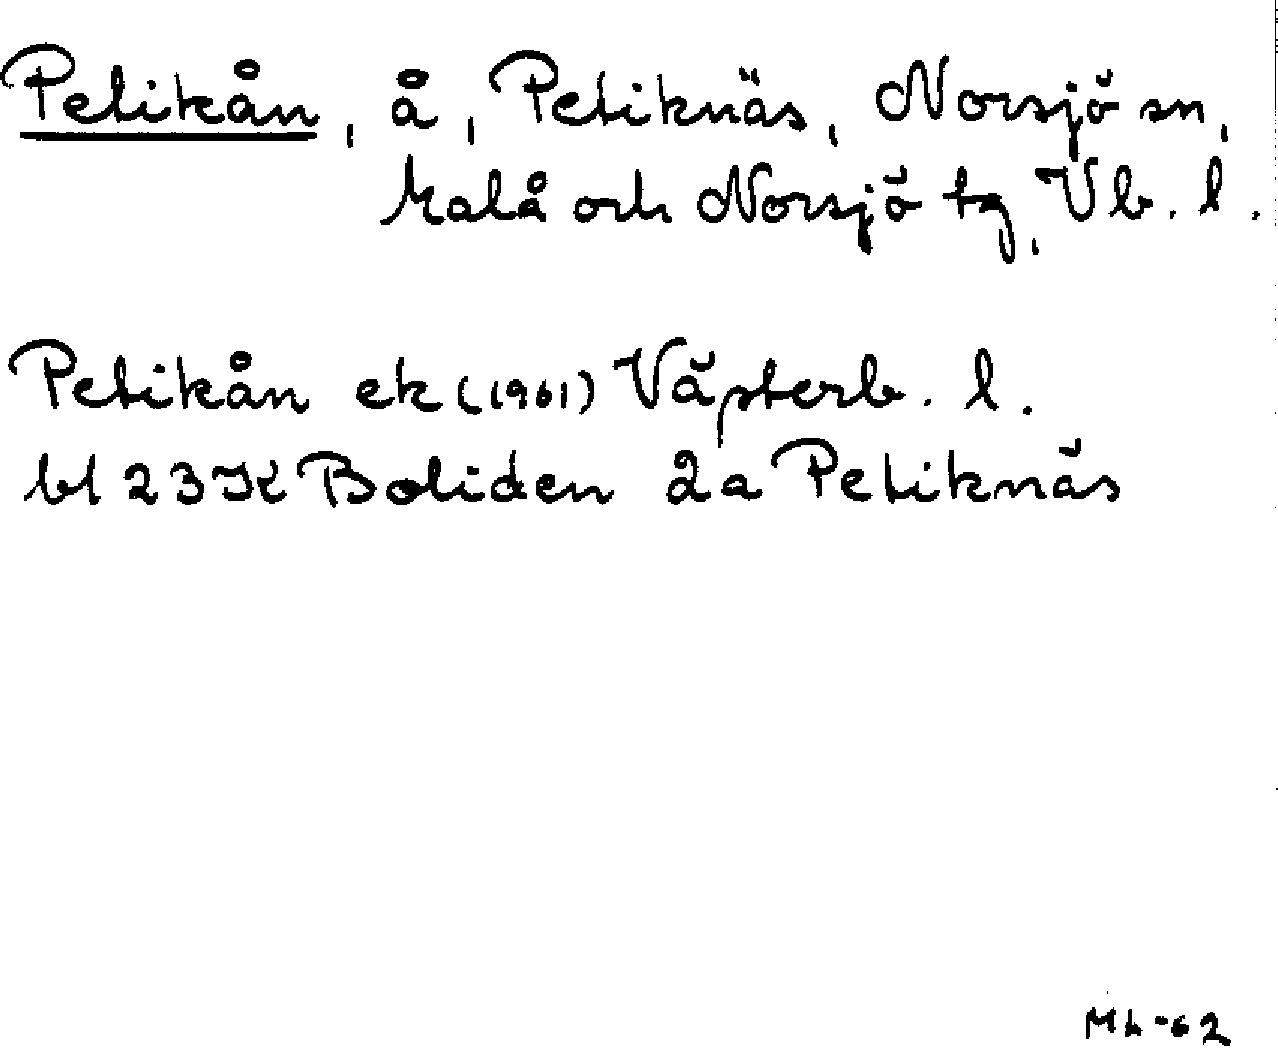 Petikån, å, Petiknäs, Norsjö sn,
Malå och Norsjö tg, Vb. l.
Petikån ek (1961) Västerb. l.
bl 23 K Boliden 2a Petiknäs
Mh-62